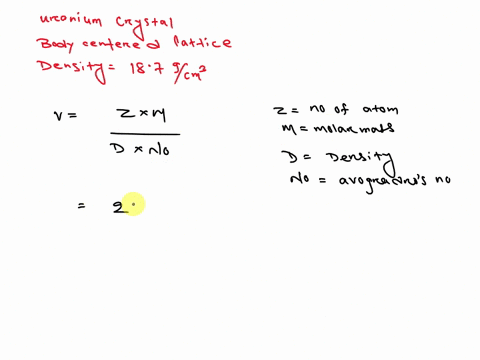 uranium crystal
Body centered lattice
Density = 18.7 g/cm³
V = Z × M / D × No
Z = no of atom
M = molar mass
D = Density
No = avogradro's no
= 2